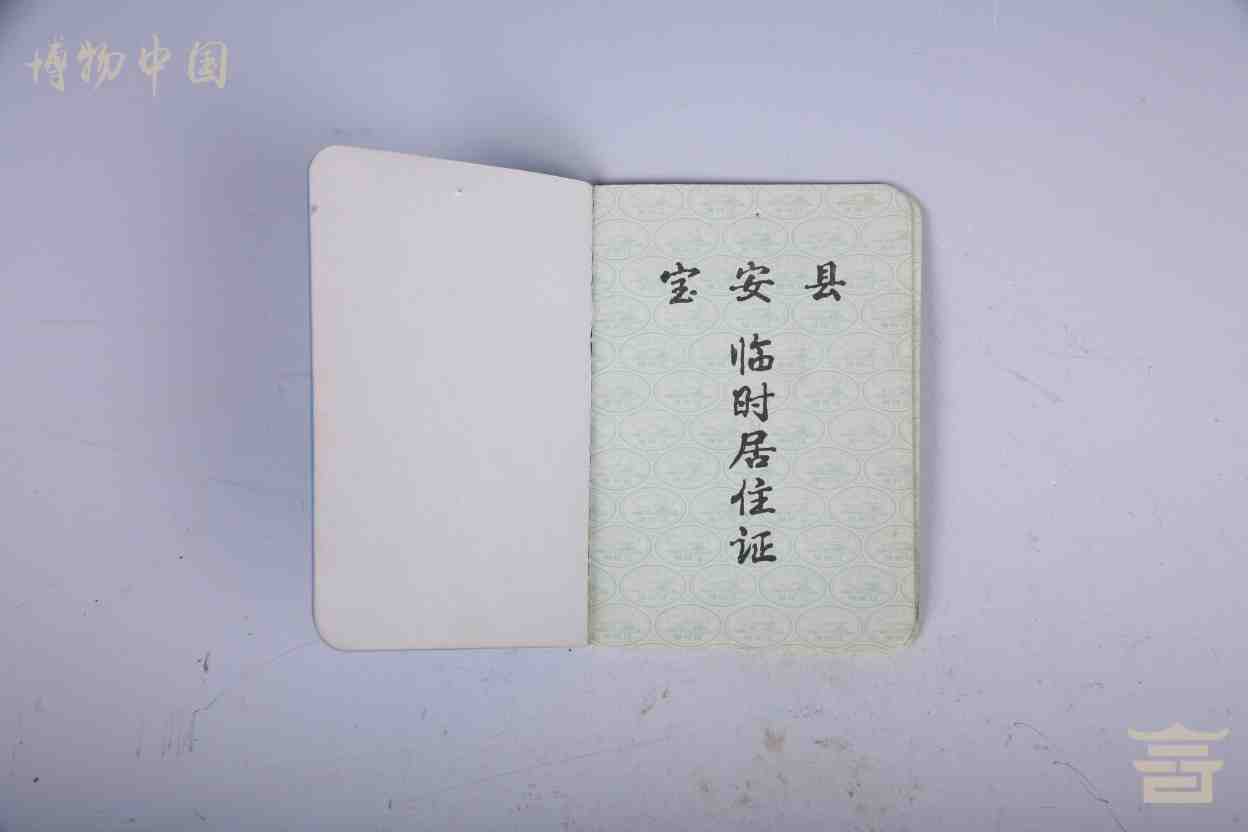 博物中国
宝安县
临时居住证